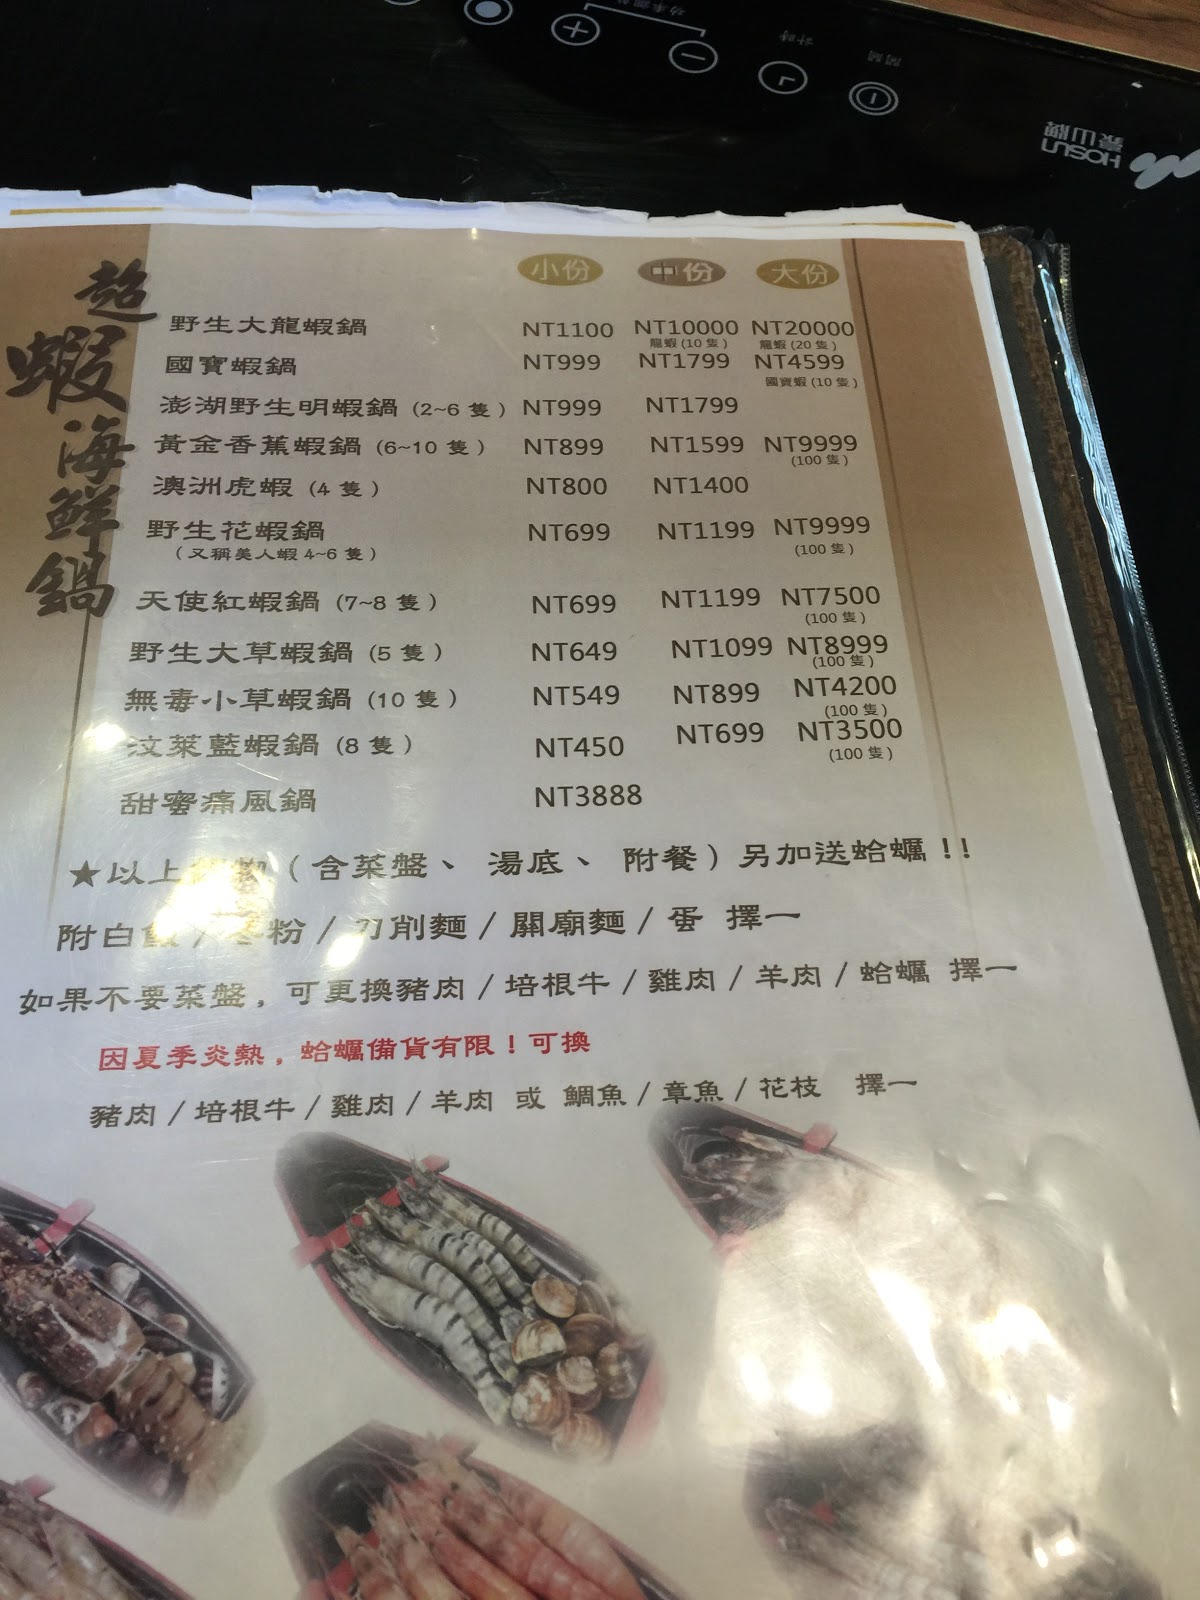 功率調整
計時
開關
HOSUN
豪山牌
超蝦海鮮鍋
小份 中份 大份
野生大龍蝦鍋 NT1100 NT10000 NT20000
龍蝦(10 隻) 龍蝦(20 隻)
國寶蝦鍋 NT999 NT1799 NT4599
國寶蝦(10 隻)
澎湖野生明蝦鍋 (2~6 隻) NT999 NT1799
黃金香蕉蝦鍋 (6~10 隻) NT899 NT1599 NT9999
(100 隻)
澳洲虎蝦 (4 隻) NT800 NT1400
野生花蝦鍋 NT699 NT1199 NT9999
(又稱美人蝦 4~6 隻) (100 隻)
天使紅蝦鍋 (7~8 隻) NT699 NT1199 NT7500
(100 隻)
野生大草蝦鍋 (5 隻) NT649 NT1099 NT8999
(100 隻)
無毒小草蝦鍋 (10 隻) NT549 NT899 NT4200
(100 隻)
汶萊藍蝦鍋 (8 隻) NT450 NT699 NT3500
(100 隻)
甜蜜痛風鍋 NT3888
★以上 (含菜盤、 湯底、 附餐) 另加送蛤蠣!!
附白飯/冬粉/刀削麵/關廟麵/蛋 擇一
如果不要菜盤, 可更換豬肉/培根牛/雞肉/羊肉/蛤蠣 擇一
因夏季炎熱, 蛤蠣備貨有限!可換
豬肉/培根牛/雞肉/羊肉 或 鯛魚/章魚/花枝 擇一